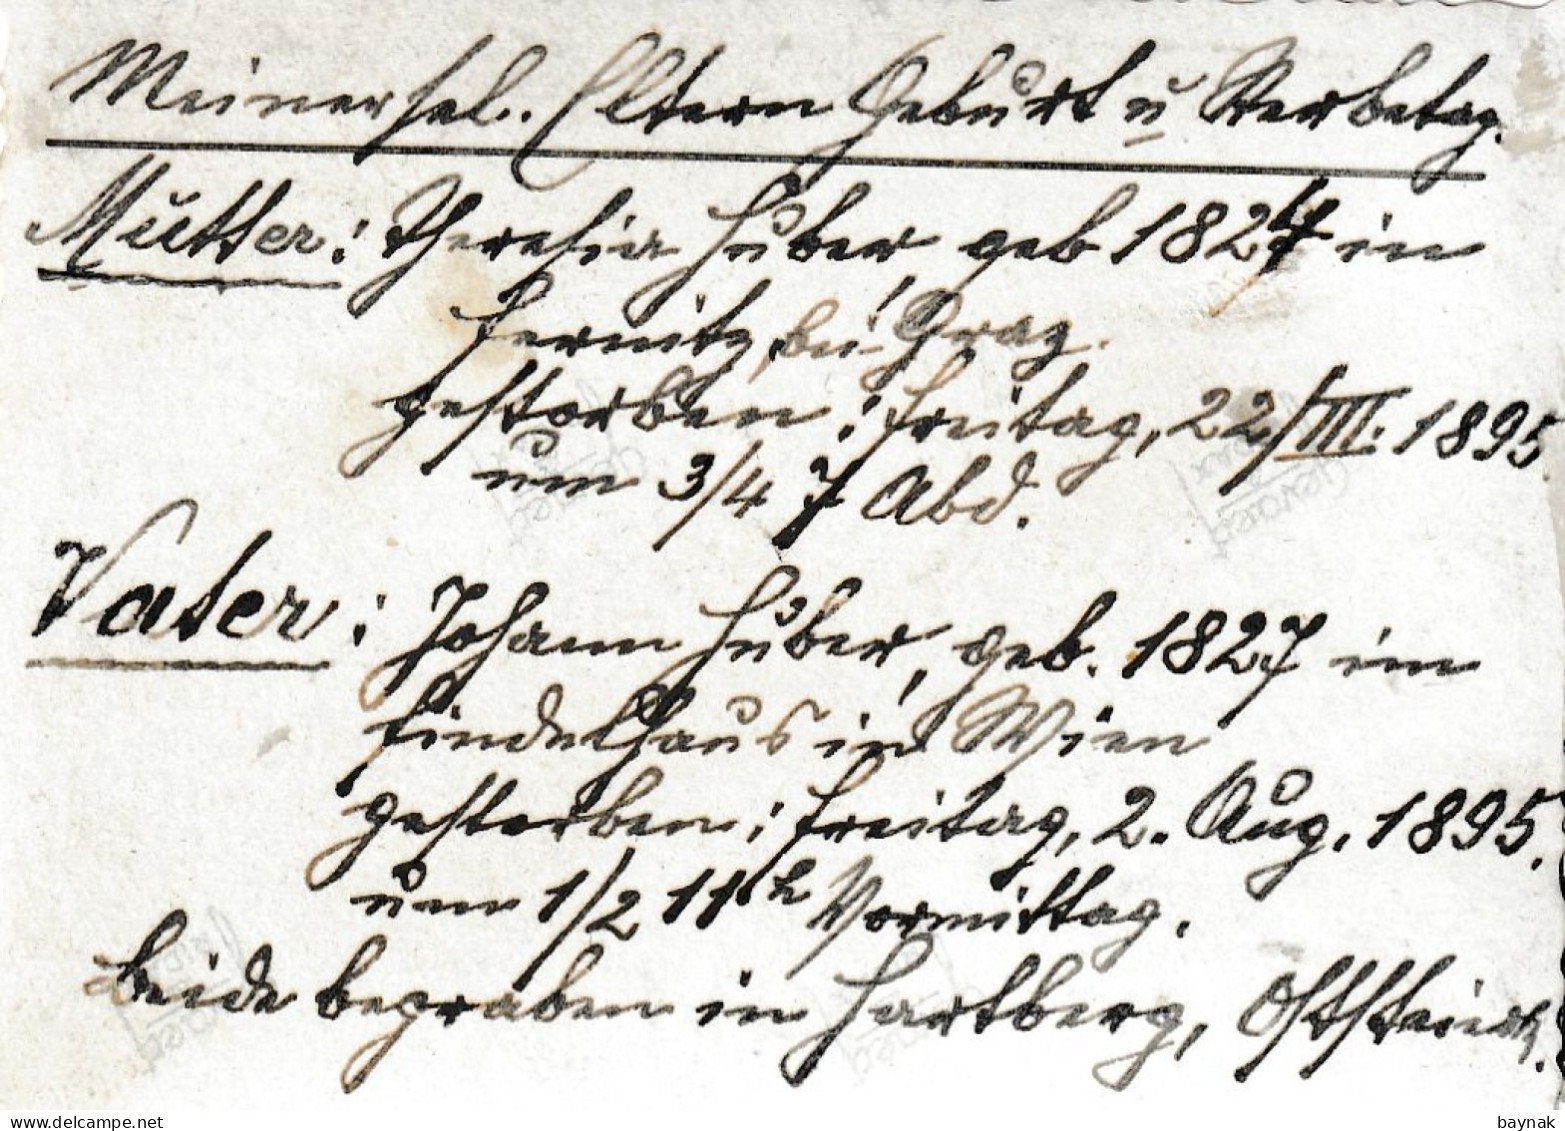 Meiner sel. Eltern Geburt u Sterbetag.
Mutter: Theresia Huber, geb 1824 in
Fernitz, bei Graz.
gestorben: Freitag, 22/III. 1895
um 3/4 7 Abd.
Vater: Johann Huber, geb. 1827 im
Findelhaus in Wien
gestorben: Freitag, 2. Aug. 1895.
um 1/2 11h Vormittag.
Beide begraben in Hartberg, Oststeierm.
www.delcampe.net
baynak